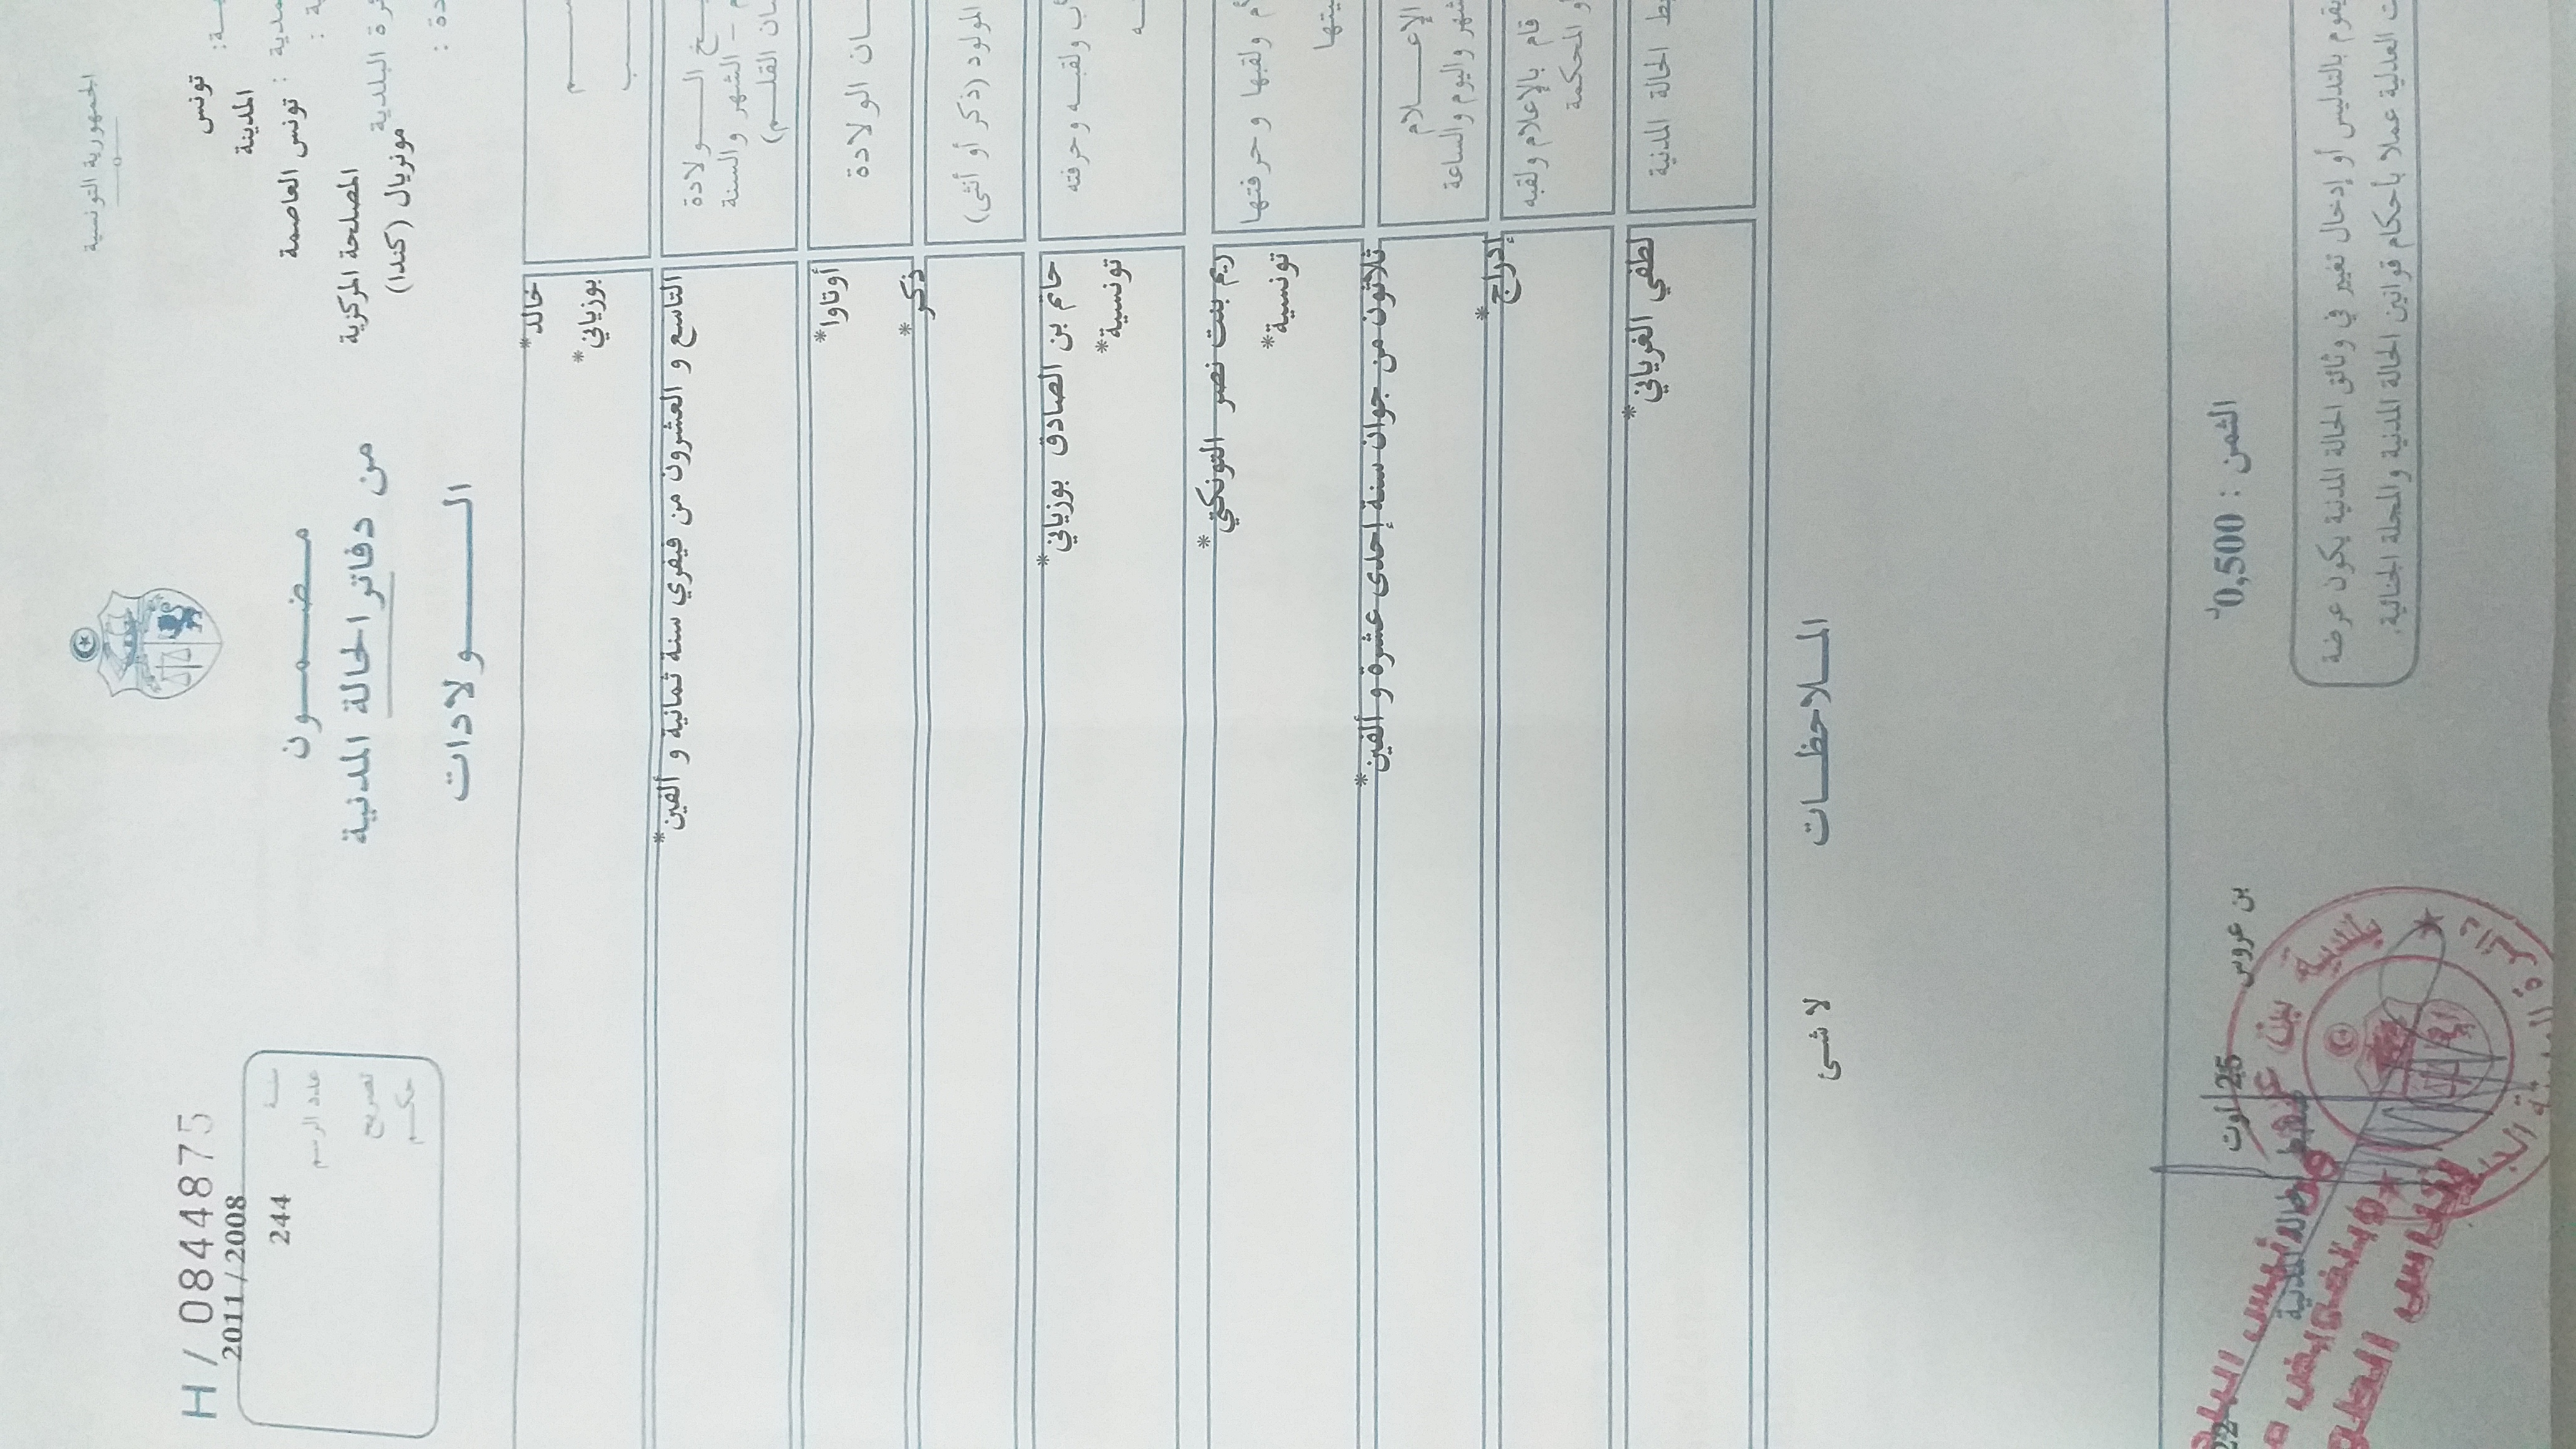 الجمهورية التونسية
تونس
المدينة
تونس العاصمة
المصلحة المركزية
البلدية
مونريال (كندا)
مضمون
من دفاتر الحالة المدنية
الولادات
H / 0844875
2011/2008
سنة
244
عدد الرسم
تصريح
حكم
خالد*
بوزياني*
الولادة
الشهر والسنة
القلم)
التاسع و العشرون من فيفري سنة ثمانية و ألفين*
الولادة
أوتاوا*
المولود (ذكر أو أنثى)
ذكر*
ولقبه وحرفته
حاتم بن الصادق بوزياني*
تونسية*
ولقبها وحرفتها
ريم بنت نصر التونكتي*
تونسية*
الإعلام
واليوم والساعة
ثلاثون من جوان سنة إحدى عشرة و ألفين*
قام بالإعلام ولقبه
المحكمة
إدراج*
الحالة المدنية
لطفي الغرياني*
الملاحظات
لا شئ
الثمن : 0,500د
بن عروس
25 أوت
ضابط الحالة المدنية
بلدية بن عروس
يقوم بالتدليس أو إدخال تغيير في وثائق الحالة المدنية يكون عرضة
العدلية عملا بأحكام قوانين الحالة المدنية والمجلة الجنائية.